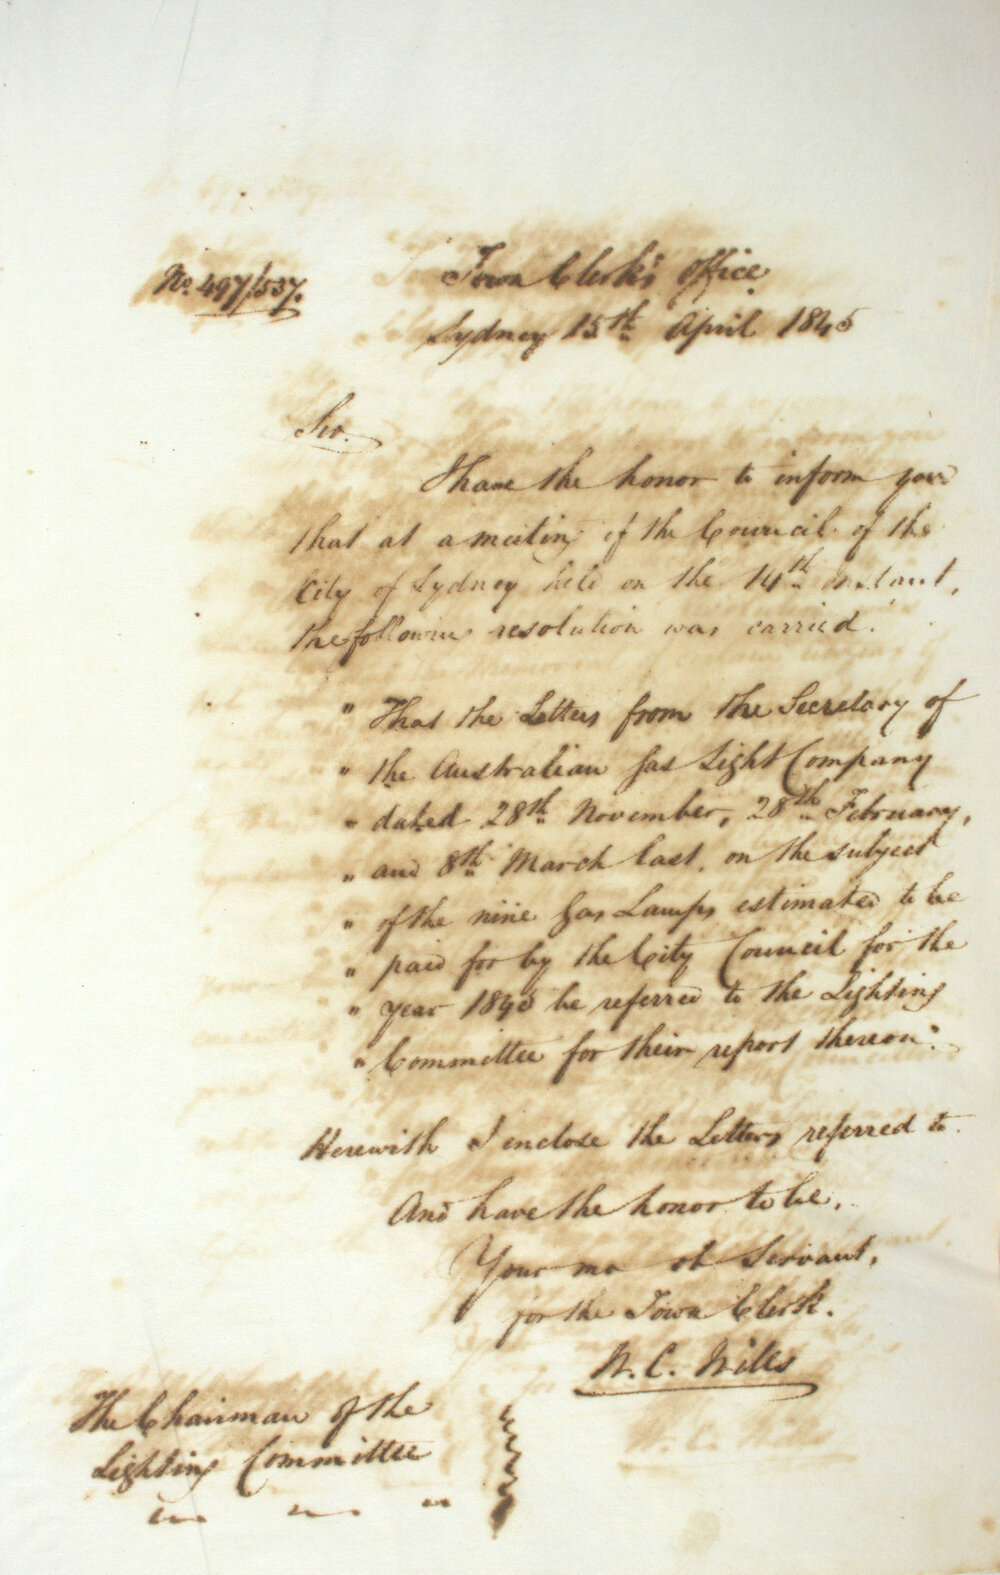 No. 497/537.
Town Clerk's Office
Sydney 15th April 1845
Sir.
I have the honor to inform you
that at a meeting of the Council of the
City of Sydney held on the 14th instant,
the following resolution was carried.
" That the Letters from the Secretary of
" the Australian Gas Light Company
" dated 28th November, 28th February,
" and 8th March last, on the subject
" of the nine Gas Lamps estimated to be
" paid for by the City Council for the
" year 1845 be referred to the Lighting
" Committee for their report thereon".
Herewith I enclose the Letters referred to.
And have the honor to be,
Your mo ob Servant,
for the Town Clerk.
W. C. Wills
The Chairman of the
Lighting Committee